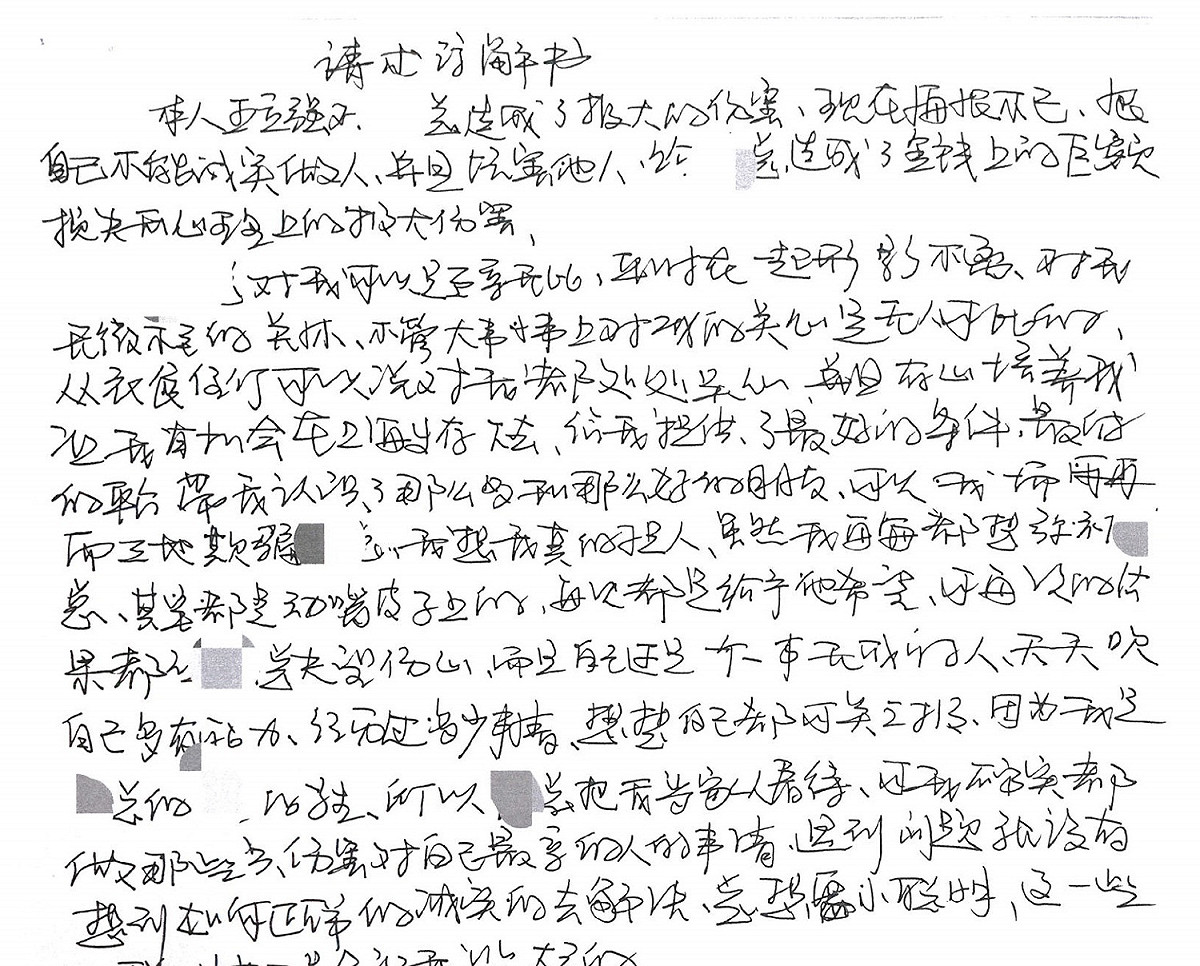 请求谅解书
本人王立强对 总造成了极大的伤害、现在悔恨不已、恨
自己不能诚实做人、并且坑害他人、给 总造成了金钱上的巨额
损失和心理上的极大伤害、
对我可以说是亲无比，平时在一起形影不离、对我
无微不至的关怀、不管大事小事上对我的关心是无人可比的、
从衣食住行可以说对我都处处关心、并且存心培养我
让我有机会在上海生存下去、给我提供了最好的条件、最好
的平台 带我认识了那么多和那么好的朋友、可以 我 而再
而三地欺骗 总、我想我真的不是人、虽然我每每都想弥补
总、其实都是动嘴皮子上的、每次都是给予他希望、可每次的结
果都让 总失望伤心、而且自己还是个一事无成的人、天天吹
自己多有能力、经历过多少事情、想想自己都可笑之极、因为我是
总的 的学生、所以 总把我当家人看待、可我不实都
做那些去伤害对自己最亲的人的事情、遇到问题就没有
想到如何正确的诚实的去解决、总想耍小聪明、这一些